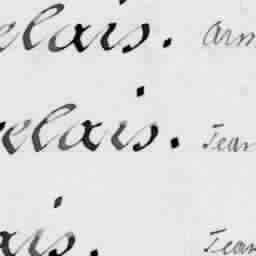 elais. Arm
relais. Jean
ais. Jean